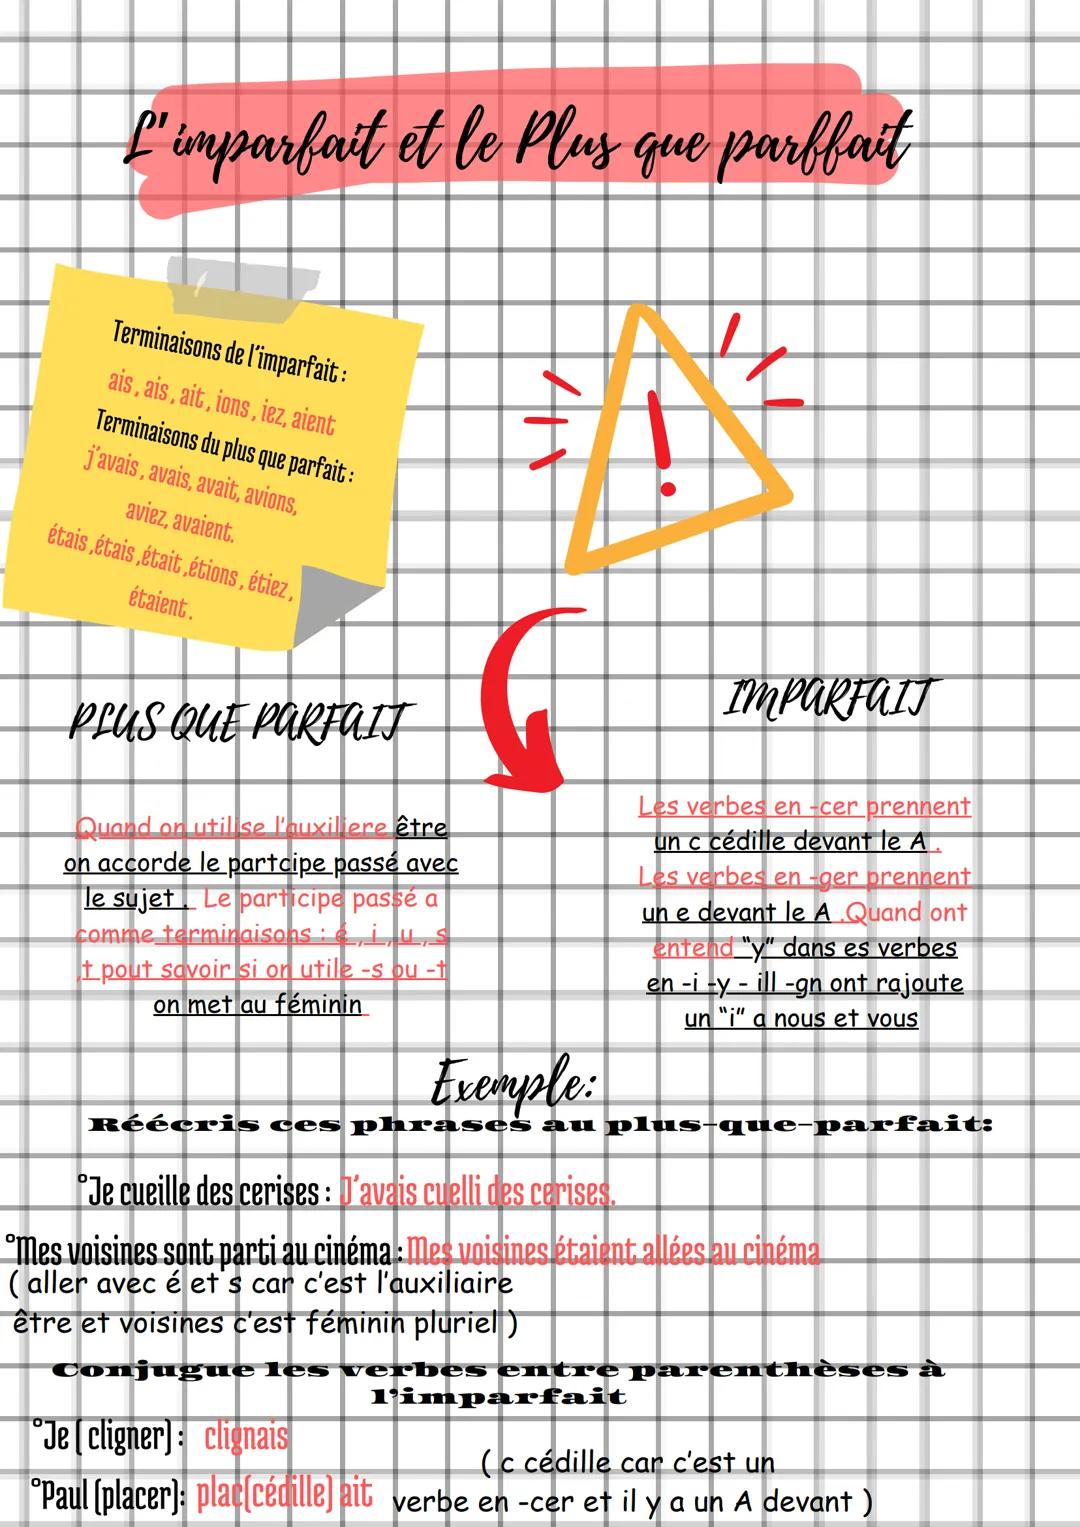 L'imparfait et le Plus que parffait
Terminaisons de l'imparfait :
ais, ais, ait, ions, iez, aient
Terminaisons du plus que parfait :
j'avais, avais, avait, avions,
aviez, avaient.
étais ,étais ,était ,étions , étiez ,
étaient .
PLUS QUE PARFAIT
IMPARFAIT
Quand on utilise l'auxiliere être
on accorde le partcipe passé avec
le sujet . Le participe passé a
comme terminaisons : é , i , u , s
,t pout savoir si on utile -s ou -t
on met au féminin
Les verbes en -cer prennent
un c cédille devant le A .
Les verbes en -ger prennent
un e devant le A .Quand ont
entend "y" dans es verbes
en -i -y - ill -gn ont rajoute
un "i" a nous et vous
Exemple:
Réécris ces phrases au plus-que-parfait:
°Je cueille des cerises : J'avais cuelli des cerises.
°Mes voisines sont parti au cinéma : Mes voisines étaient allées au cinéma
( aller avec é et s car c'est l'auxiliaire
être et voisines c'est féminin pluriel )
Conjugue les verbes entre parenthèses à
l'imparfait
°Je ( cligner) : clignais
°Paul (placer): plac(cédille) ait
( c cédille car c'est un
verbe en -cer et il y a un A devant )